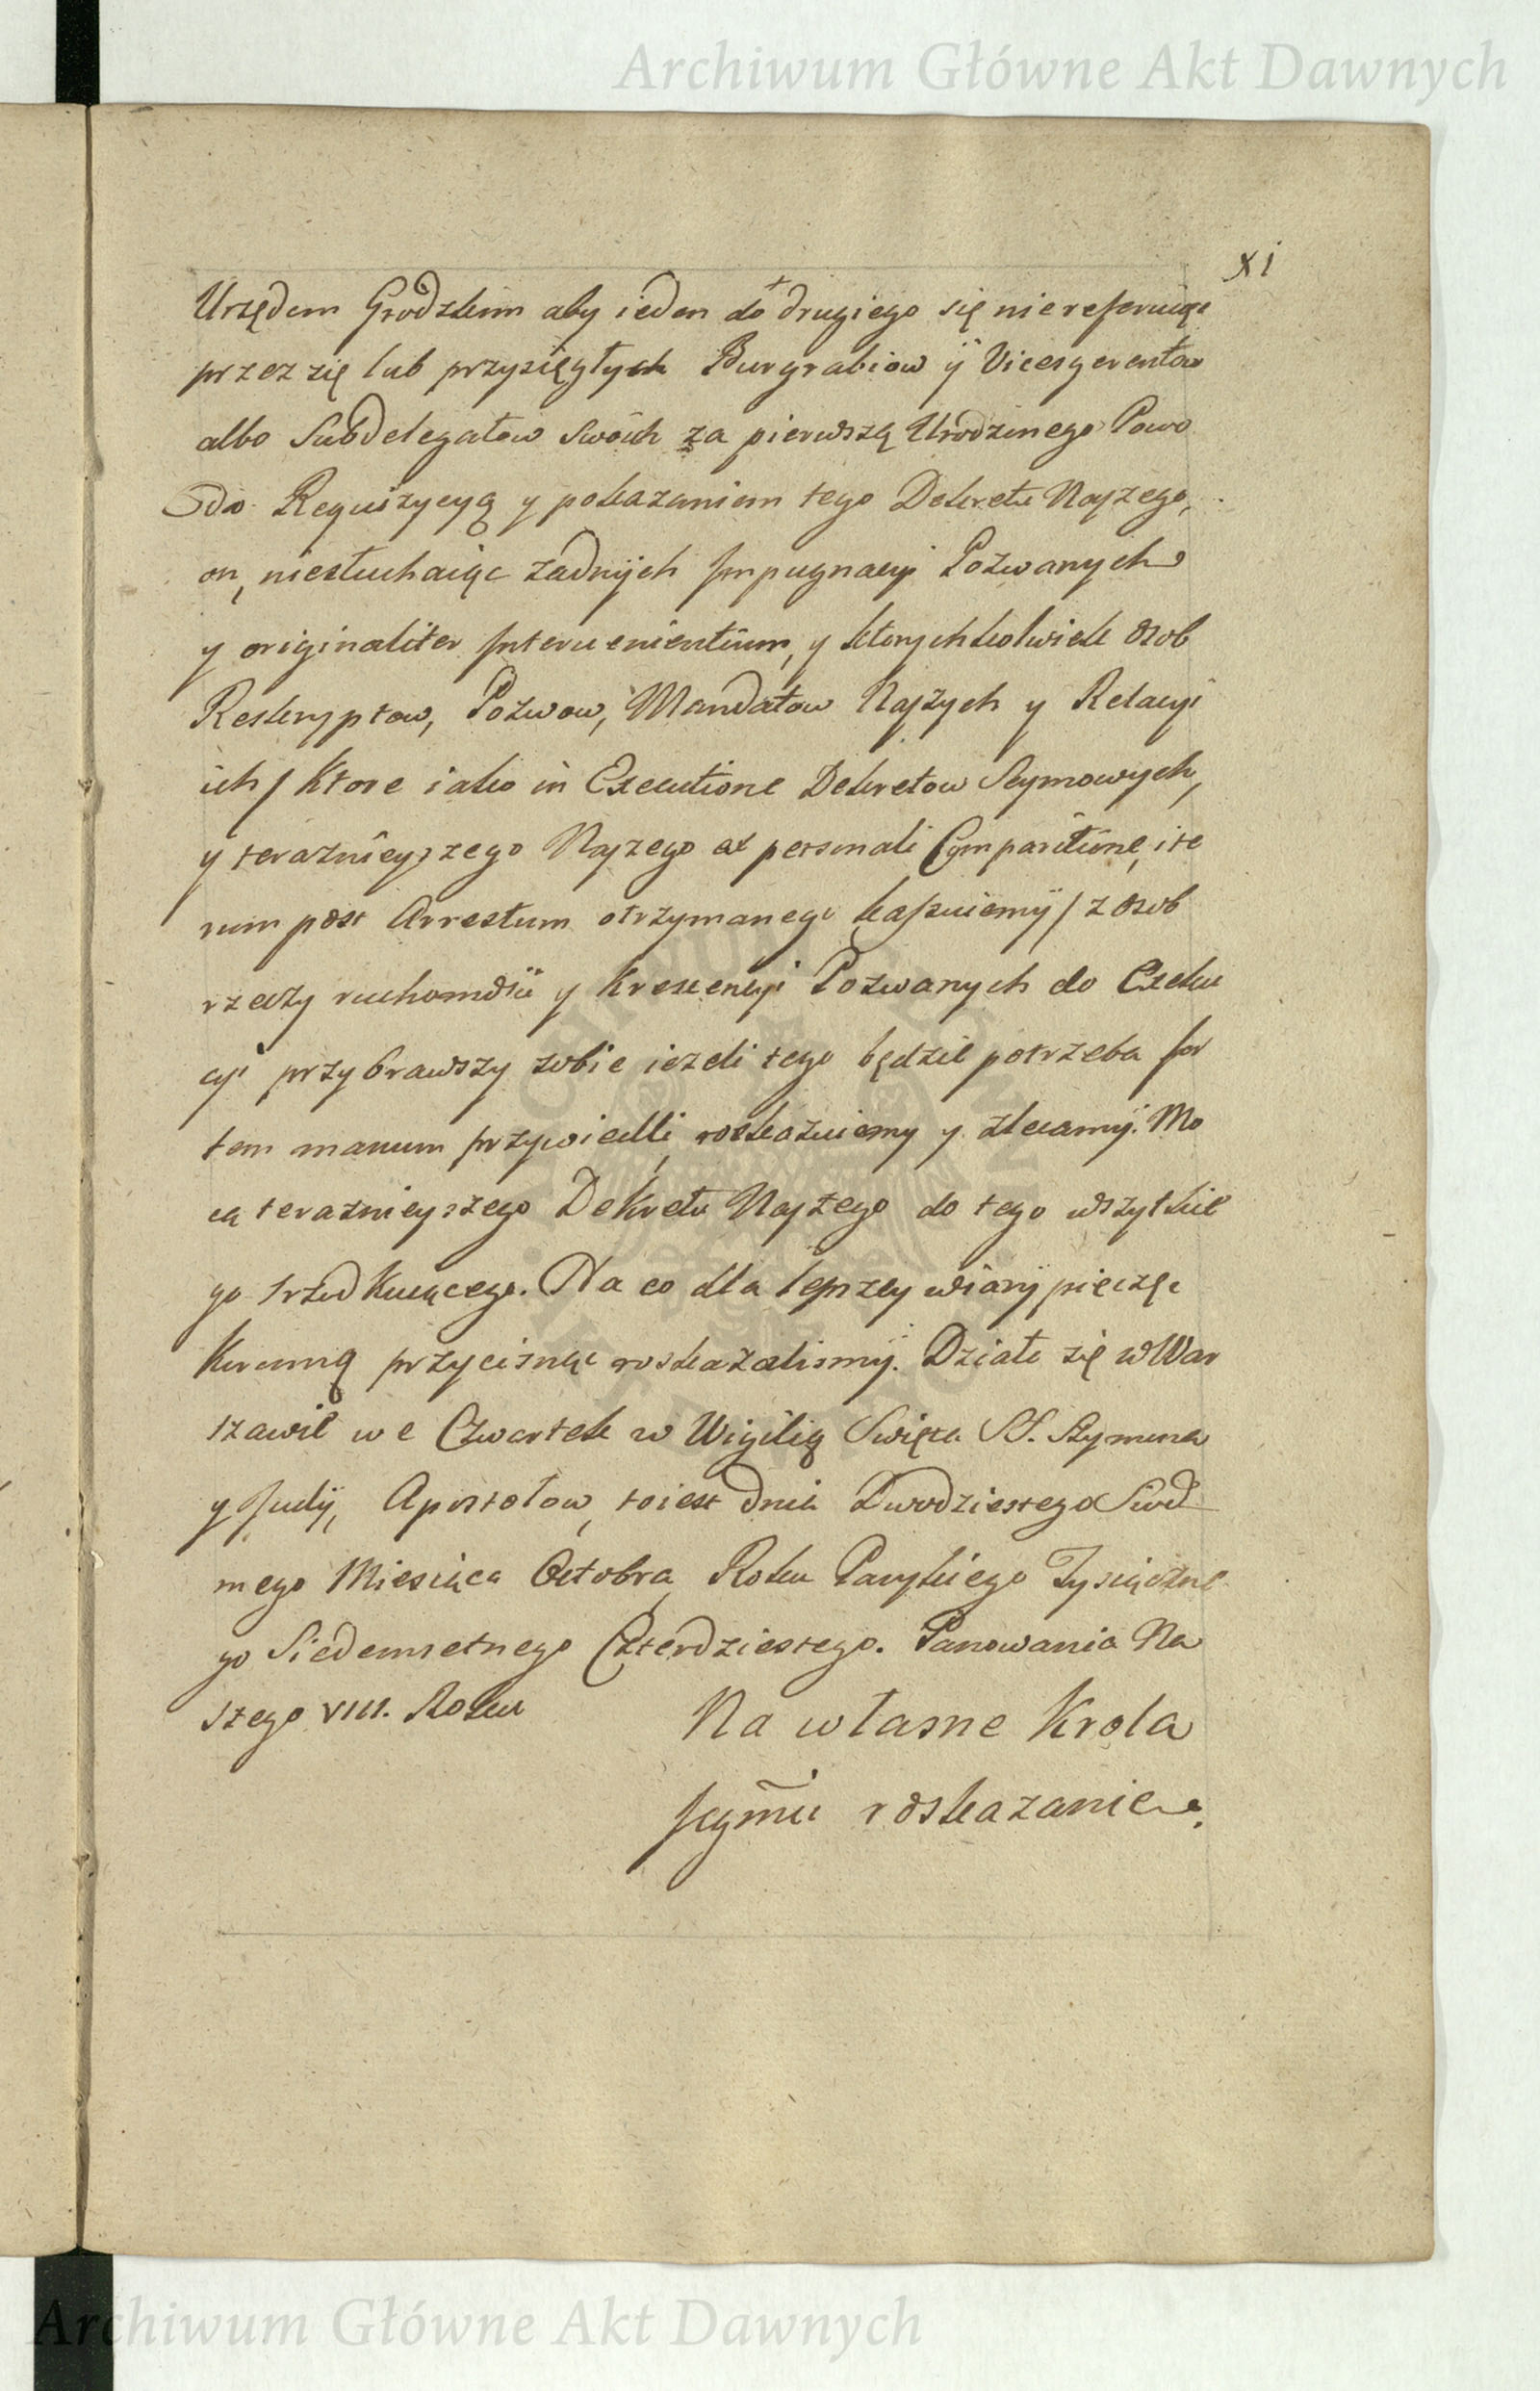 Archiwum Główne Akt Dawnych
XI
Urzędem Grodzkim aby ieden do drugiego się niereferuiąc
przez się lub przysięgłych Burgrabiow ÿ Vicesgerentow
albo Subdelegatow swoich za pierwszą Urodzonego Powo
da Requizycyą y pokazaniem tego Dekretu Naszego,
on, niesłuchaiąc żadnych Impugnacyi Pozwanych
y originaliter Intervenientium, y ktorychkolwiek osob
Reskryptow, Pozwow, Mandatow Naszych y Relacyi
ich / Ktore iako in Executione Dekretow Seymowych,
y teraznieyszego Naszego ex personali Comparitione, ite
rum post Arrestum otrzymanego kassuiemÿ / z osob
rzeczy ruchomosci y Krescencyi Pozwanych do Exeku
cyi przybrawszy sobie ieżeli tego będzie potrzeba for
tem manum przywiedli, roskazuiemy y zlecamy. Mo
cą teraznieyszego Dekretu Naszego do tego wszytkie
go srzodkuiącego. Na co dla lepszey wiary pieczęc
Koronną przycisnąc roskazalismÿ. Działo się w War
szawie we Czwartek w Wigilią Swięta SS. Szymona
y Judÿ, Apostołow, toiest dnia Dwodziestego Siod
mego Miesiąca Octobra, Roku Panskiego Tysiączne
go Siedemsetnego Czterdziestego. Panowania Na
szego VIII. Roku
Na własne Krola
Jegm̃ci roskazanie.
Archiwum Główne Akt Dawnych